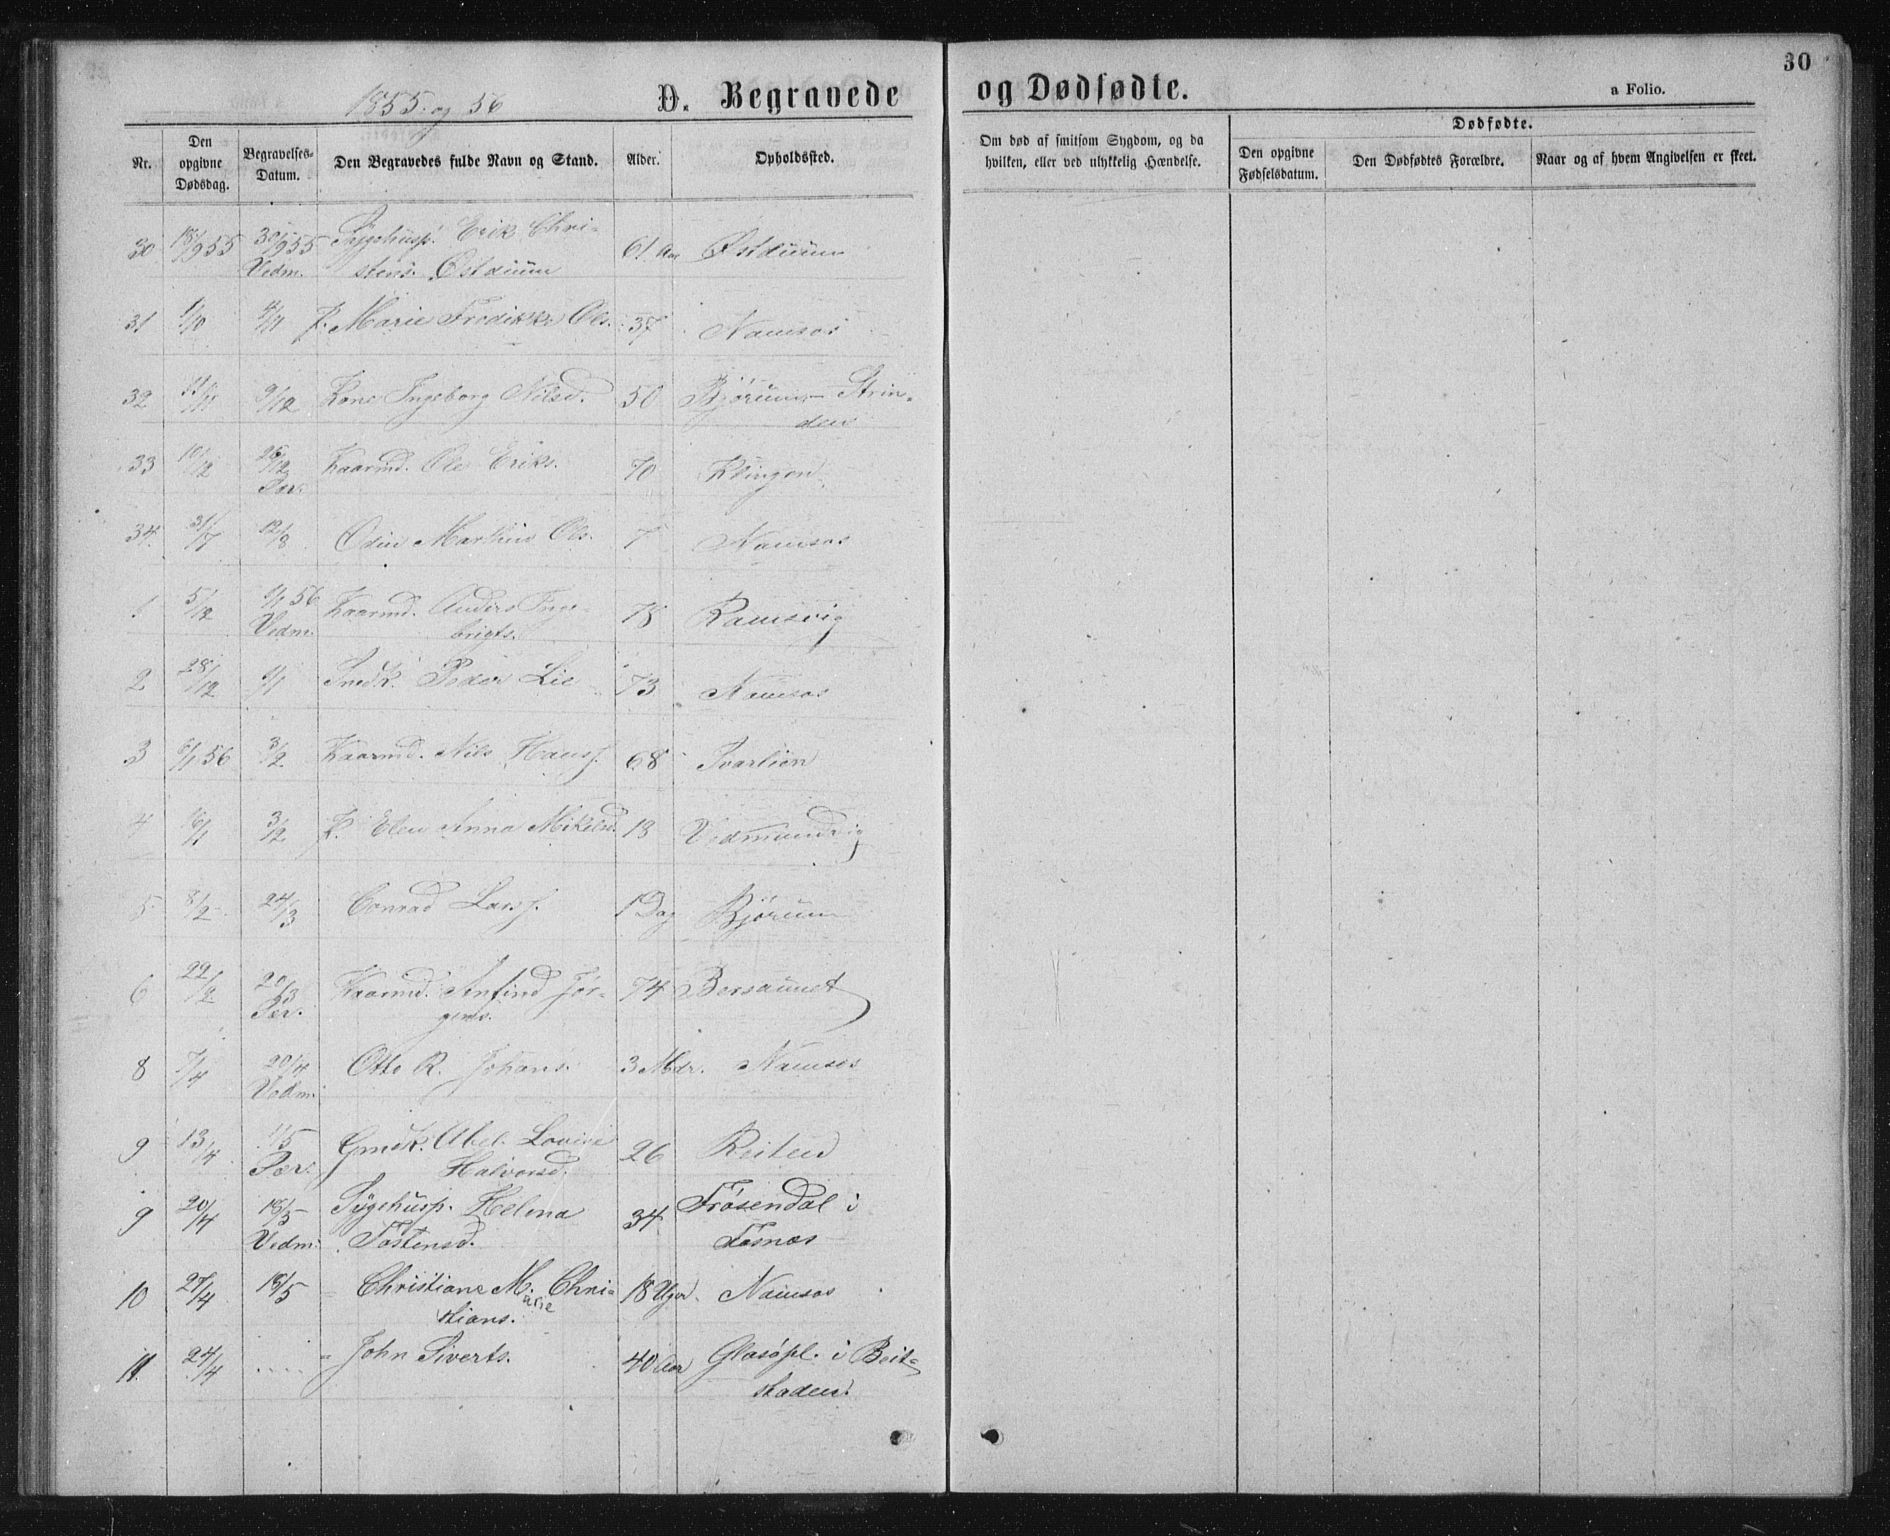 1855 og 56 D. Begravede og Dødfødte. a Folio. 30
Nr. Den opgivne Dødsdag. Begravelses-Datum. Den Begravedes fulde Navn og Stand. Alder. Opholdssted. Om død af smitsom Sygdom, og da hvilken, eller ved ulykkelig Hændelse. Dødfødte.
Den opgivne Fødselsdatum. Den Dødfødtes Forældre. Naar og af hvem Angivelsen er skeet.
30 18/9 55 30/9 55 Sygehusp. Erik Chri-
Vedm. stens. Østduun 61 Aar Østduun
31 1/10 4/11 P. Marie Fredikke Ols. 37 Namsos
32 11/11 9/12 Kone Ingeborg Nilsd. 50 Bjørum - Strin-
den
33 10/12 26/12 Kaarmd. Ole Eriks. 70 Klingen
Sær.
34 31/7 12/8 Odin Marthin Ols. 7 Namsos
1 5/12 6/1 56 Kaarmd. Anders Inge-
Vedm. brigts. 78 Ramsvig
2 28/12 6/1 Snedk. Peder Lie 73 Namsos
3 6/1 56 3/2 Kaarmd. Nils Hans. 68 Ivarlien
4 16/1 3/2 P. Elen Anna Mikelsd. 13 Vedmundvig
5 8/2 24/3 Conrad Lars. 1 Dag Bjørum
6 22/2 20/3 Kaarmd. Anfind Jør- 74 Bersaunet
Sær. gens.
8 7/4 20/4 Otto R. Johans. 3 Mdr. Namsos
Vedm.
9 13/4 1/5 Gmdk. Abel Lovise 26 Reiten
Sær. Halvorsd.
9 20/4 18/5 Sygehusp. Helena 34 Frøsendal i
Vedm. Tostensd. Fosnes
10 27/4 18/5 Christiane M. Chri- 18 Uger Namsos
arie
stians.
11 24/4 ..... John Siverts. 40 Aar Glasøpl. i Beit-
staden.